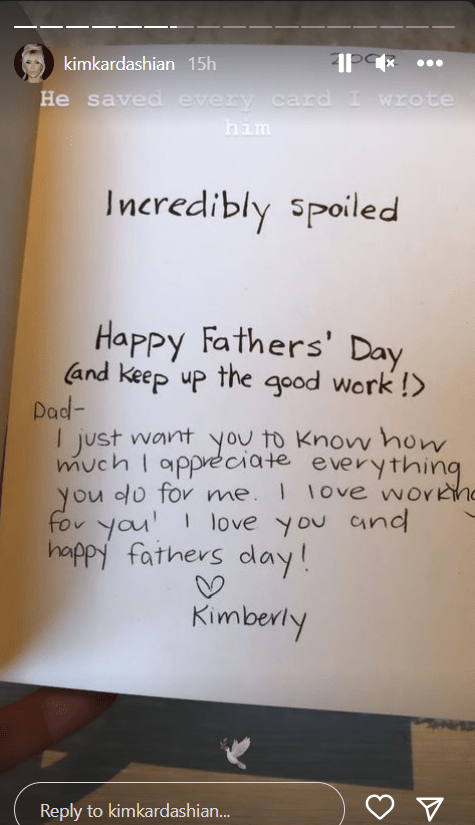 kimkardashian 15h
He saved every card I wrote
him
Incredibly spoiled
Happy Fathers' Day
(and keep up the good work!)
Dad-
I just want you to know how
much I appreciate everything
you do for me. I love working
for you! I love you and
happy fathers day!
♡
Kimberly
Reply to kimkardashian...